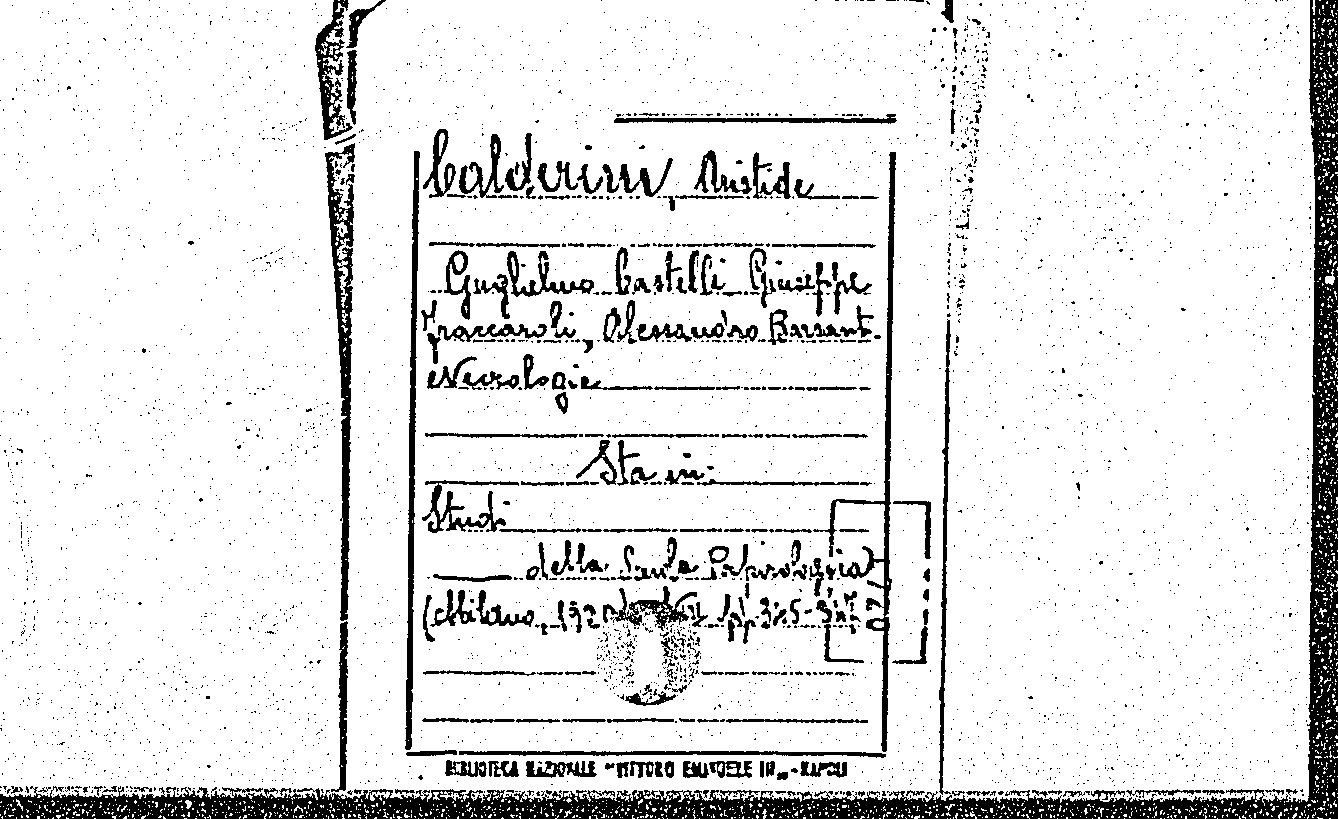 Calderini, Aristide
Guglielmo Castelli Giuseppe
Fraccaroli, Alessandro Barsant.
Necrologie
Sta in:
Studi
della Scuola Papirologica
(Milano, 1920 pp.
BIBLIOTECA NAZIONALE "VITTORIO EMANUELE III„ - NAPOLI